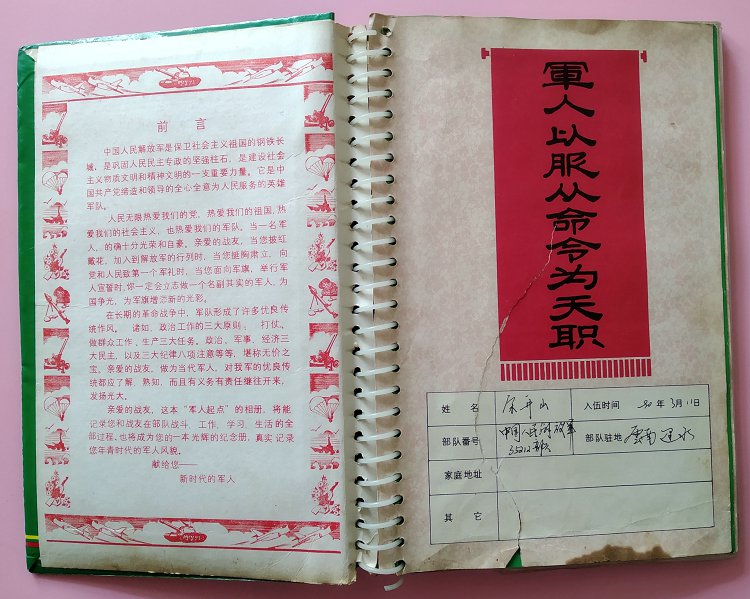 前言
中国人民解放军是保卫社会主义祖国的钢铁长
城，是巩固人民民主专政的坚强柱石，是建设社会
主义物质文明和精神文明的一支重要力量。它是中
国共产党缔造和领导的全心全意为人民服务的英雄
军队。
人民无限热爱我们的党，热爱我们的祖国，热
爱我们的社会主义，也热爱我们的军队。当一名军
人，的确十分光荣和自豪。亲爱的战友，当您披红
戴花，加入到解放军的行列时，当您挺胸肃立，向
党和人民致第一个军礼时，当您面向军旗，举行军
人宣誓时，你一定会立志做一个名副其实的军人，为
国争光，为军旗增添新的光彩。
在长期的革命战争中，军队形成了许多优良传
统作风。诸如，政治工作的三大原则；打仗、
做群众工作，生产三大任务。政治，军事，经济三
大民主，以及三大纪律八项注意等等，堪称无价之
宝。亲爱的战友，做为当代军人，对我军的优良传
统都应了解，熟知，而且有义务有责任继往开来，
发扬光大。
亲爱的战友，这本“军人起点”的相册，将能
记录您和战友在部队战斗，工作，学习，生活的全
部过程，也将成为您的一本光辉的纪念册，真实记录
您年青时代的军人风貌。
献给您——
新时代的军人
軍人以服从命令为天职
姓名 入伍时间 90年3月11日
部队番号 中国人民解放军 部队驻地 云南
家庭地址
其它